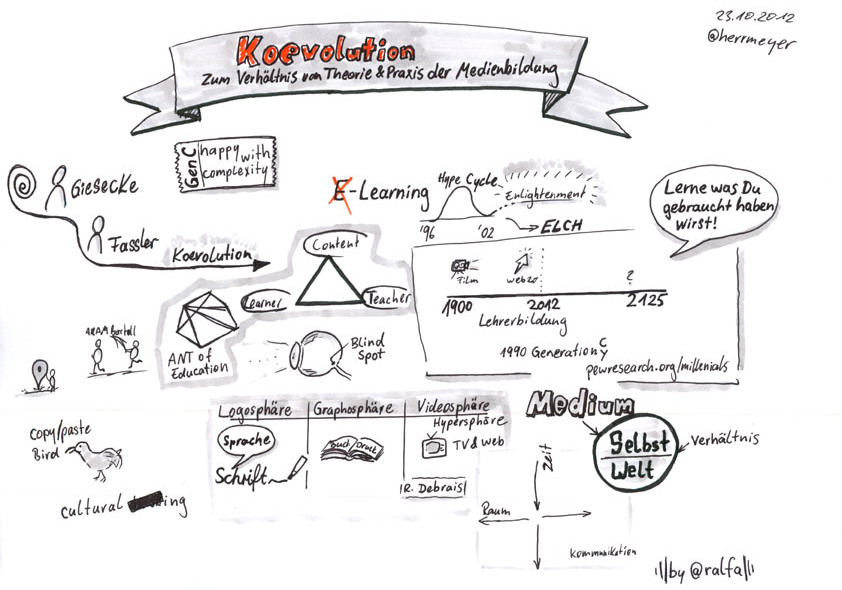 23.10.2012
@herrmeyer
Koevolution
Zum Verhältnis von Theorie & Praxis der Medienbildung
Giesecke
Fassler
Koevolution
GenC
happy with
complexity
E-Learning
Hype Cycle
Enlightenment
'96
'02
ELCH
Lerne was Du
gebraucht haben
wirst!
Content
Learner
Teacher
ANT of
Education
Blind
Spot
Film
web2.0
?
1900
2012
2125
Lehrerbildung
1990 Generation C
Y
pewresearch.org/millenials
ARAM Bartoll
copy/paste
Bird
cultural
ing
Logosphäre
Graphosphäre
Videosphäre
Hypersphäre
Sprache
Schrift
Buch/Druck
TV & Web
R. Debrais
Medium
Selbst
Welt
Verhältnis
Zeit
Raum
Kommunikation
by @ralfa